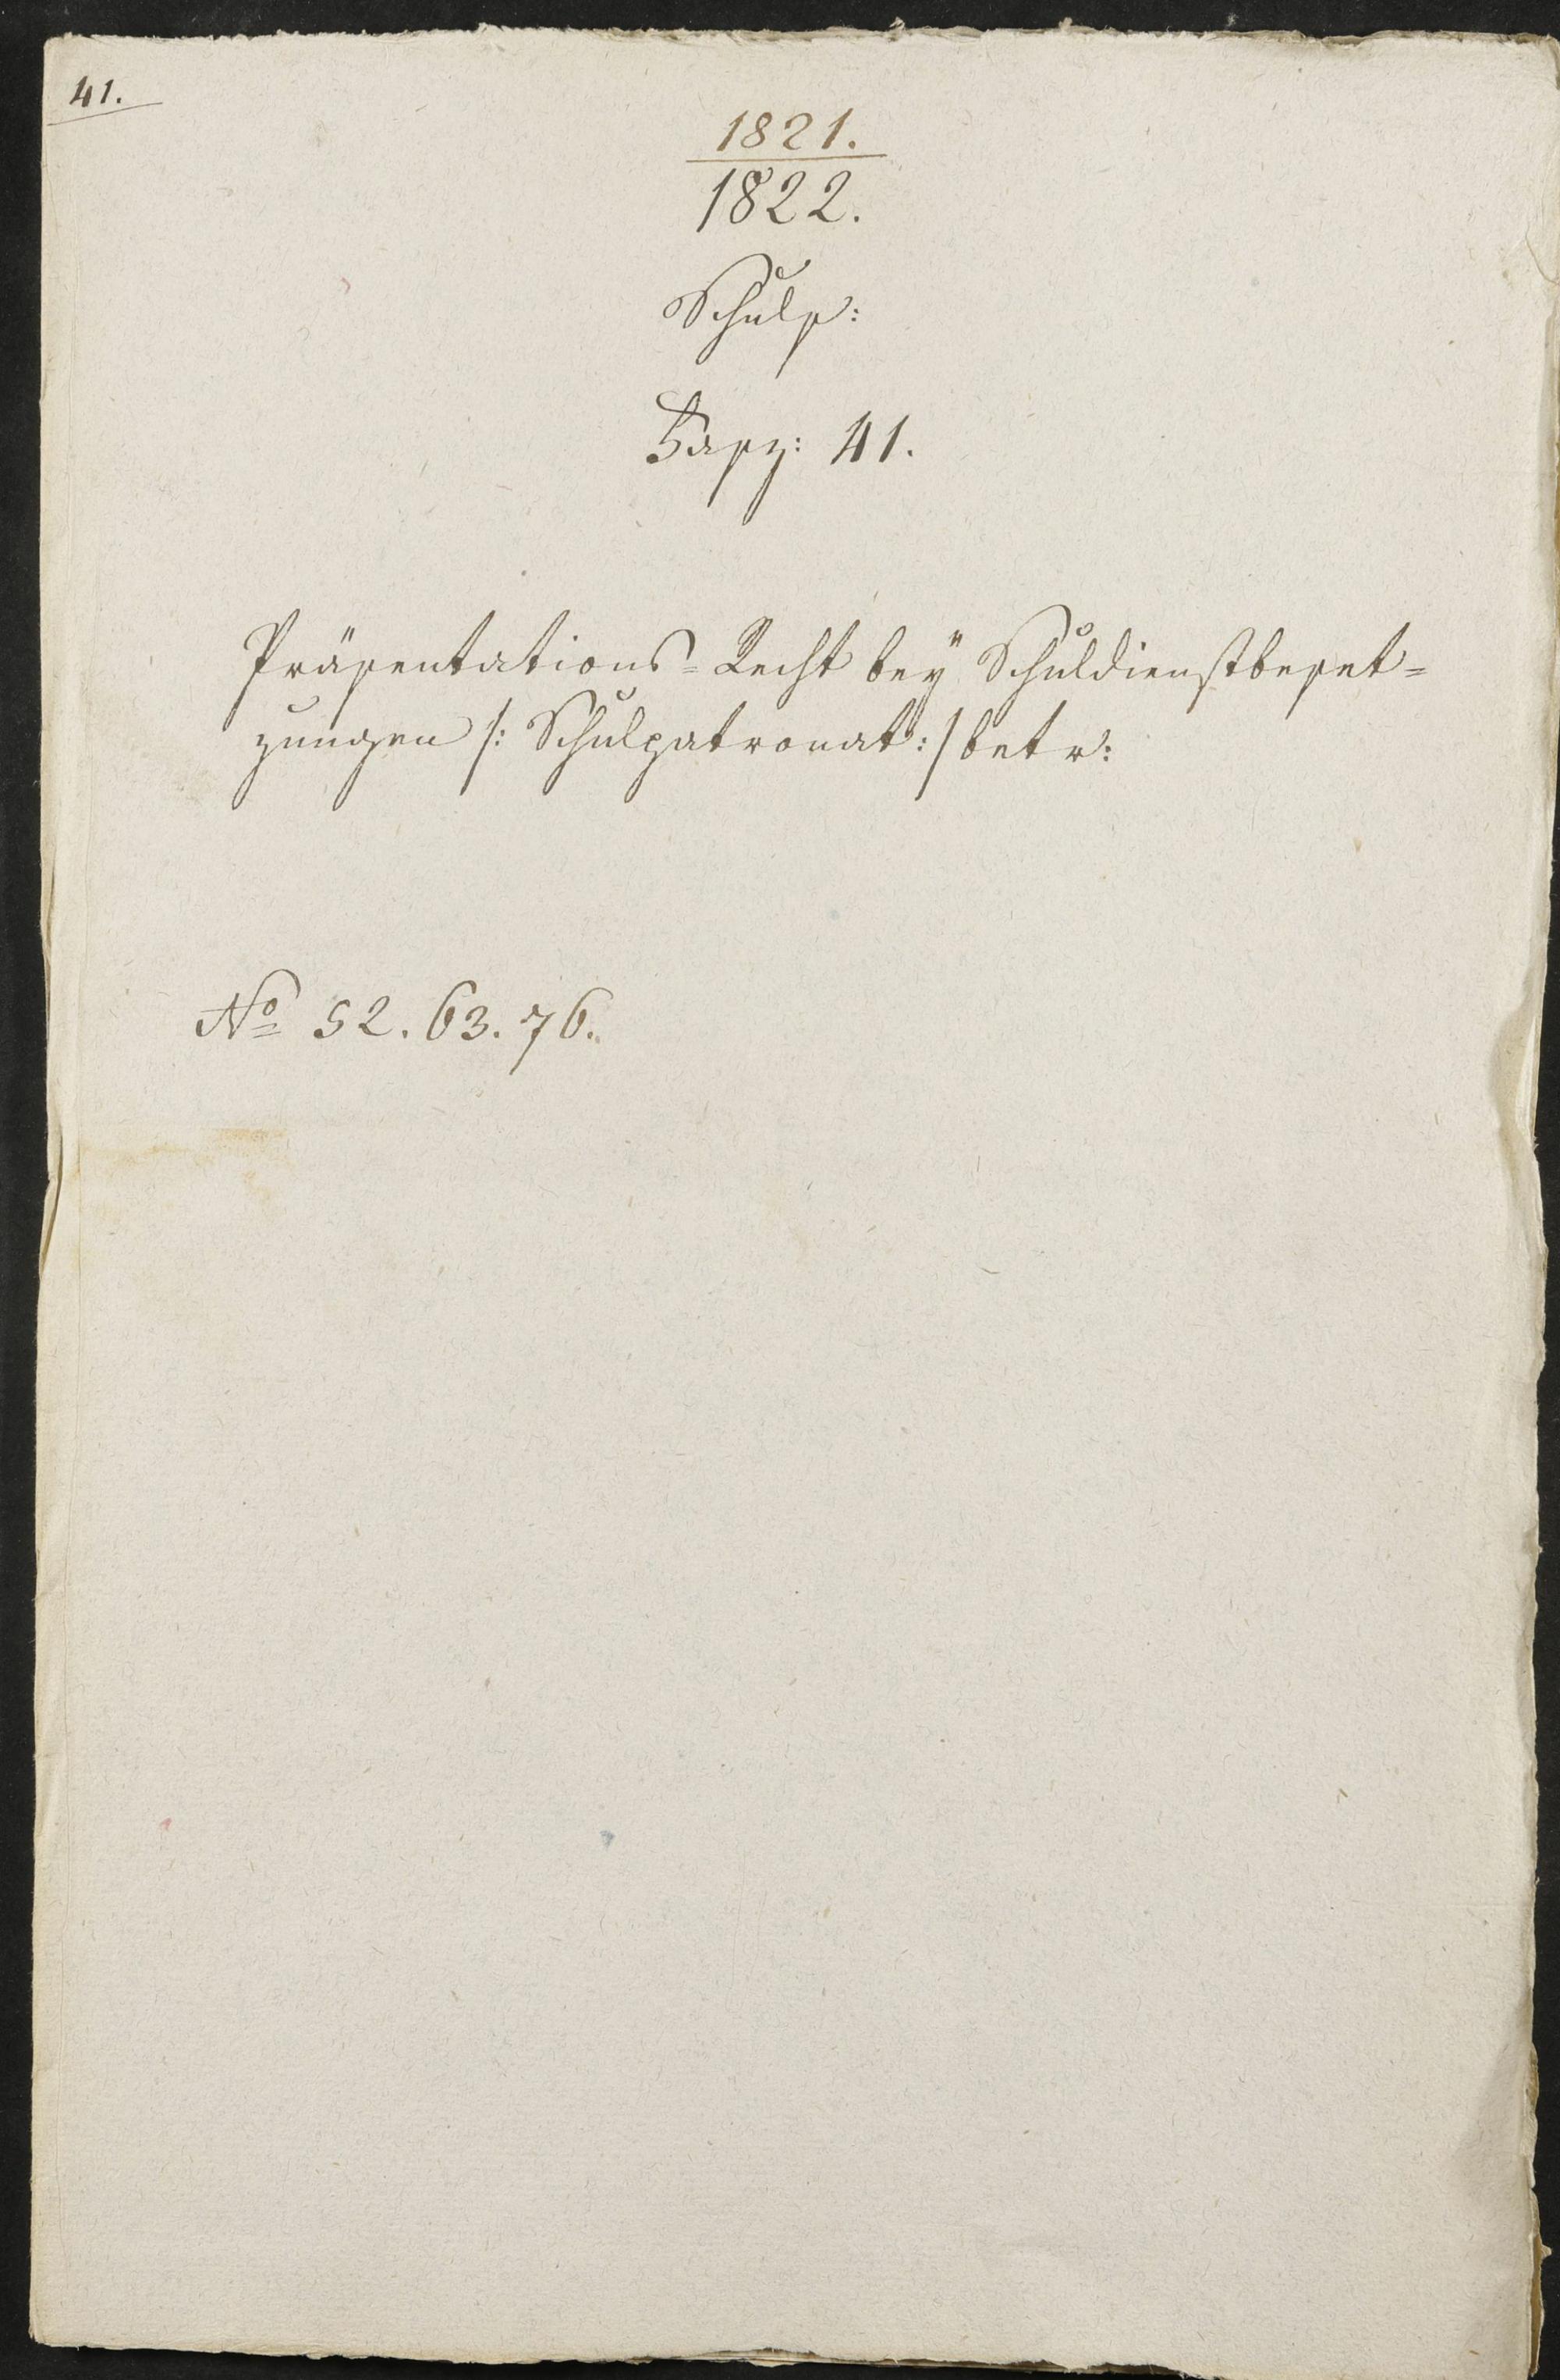 41.
1821.
1822.
Schuls:
Fasz: 41.
Präsentations=Recht bey Schuldienstbeset=
zungen /: Schulpatronat :/ betr:
No 52. 63. 76.